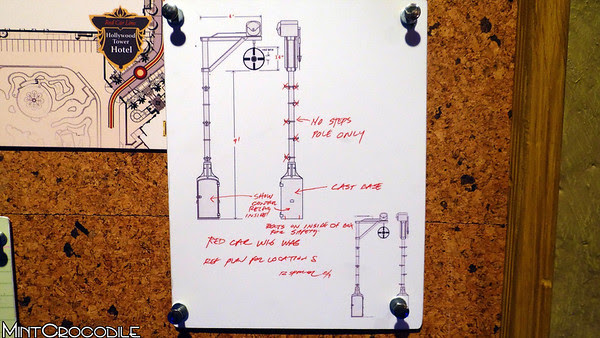 Red Car Lane
Hollywood
Tower
Hotel
4'
9'
NO STEPS
POLE ONLY
CAST BASE
SHOW
POWER
RELAY
INSIDE
BOLTS ON INSIDE OF BOX
FOR SAFETY
RED CAR WIG WAG
REF PLAN FOR LOCATIONS
MINTCROCODILE